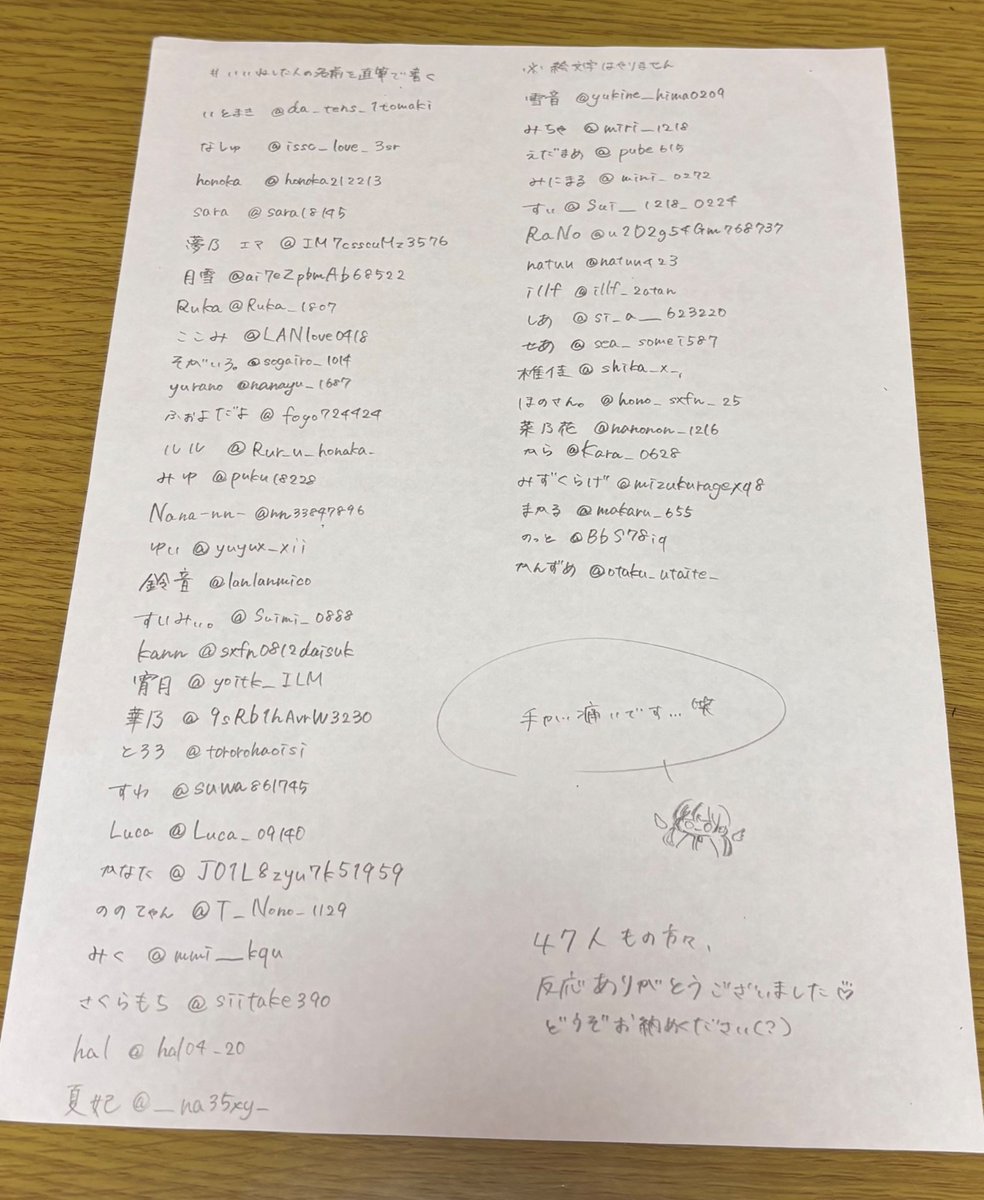 #いいねした人の名前を直筆で書く
いとまき @da_tens_1tomaki
なしゅ @isso_love_3sr
honoka @honoka212213
sara @sara18145
夢乃 エマ @IM7csscuMz3576
月雪 @ai7eZpbmAb68522
Ruka @Ruka_1807
ここみ @LANlove0418
そがいろ。 @sogairo_1014
yurano @nanayu_1687
ふぉよだよ @foyo724424
ルル @Rur_u_honaka_
みゆ @puku18228
Nana-nn- @nn33847896
ゆい @yuyux_xii
鈴音 @lanlanmico
すいみぃ。 @Suimi_0888
kann @sxfn0812daisuk
宵月 @yoitk_ILM
華乃 @9sRb1hAvrW3230
とろろ @tororohaoisi
すわ @suwa861745
Luca @Luca_09140
かなた @JO1L8zyu7k51959
ののてゃん @T_Nono_1129
みく @mmi__kqu
さくらもち @siitake390
hal @hal04_20
夏妃 @__na35xy_
※絵文字はやりません
雪音 @yukine_hima0209
みちゃ @miri_1218
えだまめ @pube615
みにまる @mini_0272
すい @Sui__1218_0224
RaNo @u2D2g54Gm768737
natuu @natuu423
illf @illf_2otan
しあ @si_a__623220
せあ @sea_somei587
椎佳 @shika_x_
ほのさん。 @hono_sxfn_25
菜乃花 @nanonon_1216
から @Kara_0628
みずくらげ @mizukuragexq8
まかる @makaru_655
のっと @BbS78iq
かんずめ @otaku_utaite_
手がい痛いです…(笑
47人もの方々、
反応ありがとうございました♡
どうぞお納めください(?)